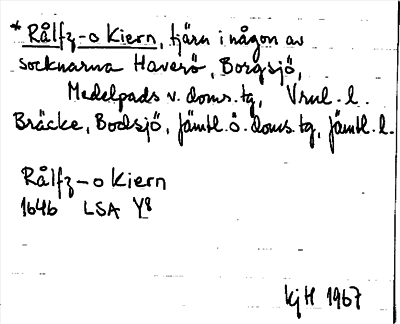 * Rålfz-o Kiern, tjärn i någon av
socknarna Haverö, Borgsjö,
Medelpads v. doms. tg, Vrnl. l.
Bräcke, Bodsjö, Jämtl. ö. doms. tg, Jämtl. l.
Rålfz-o Kiern
1646 LSA Y8
kjH 1967